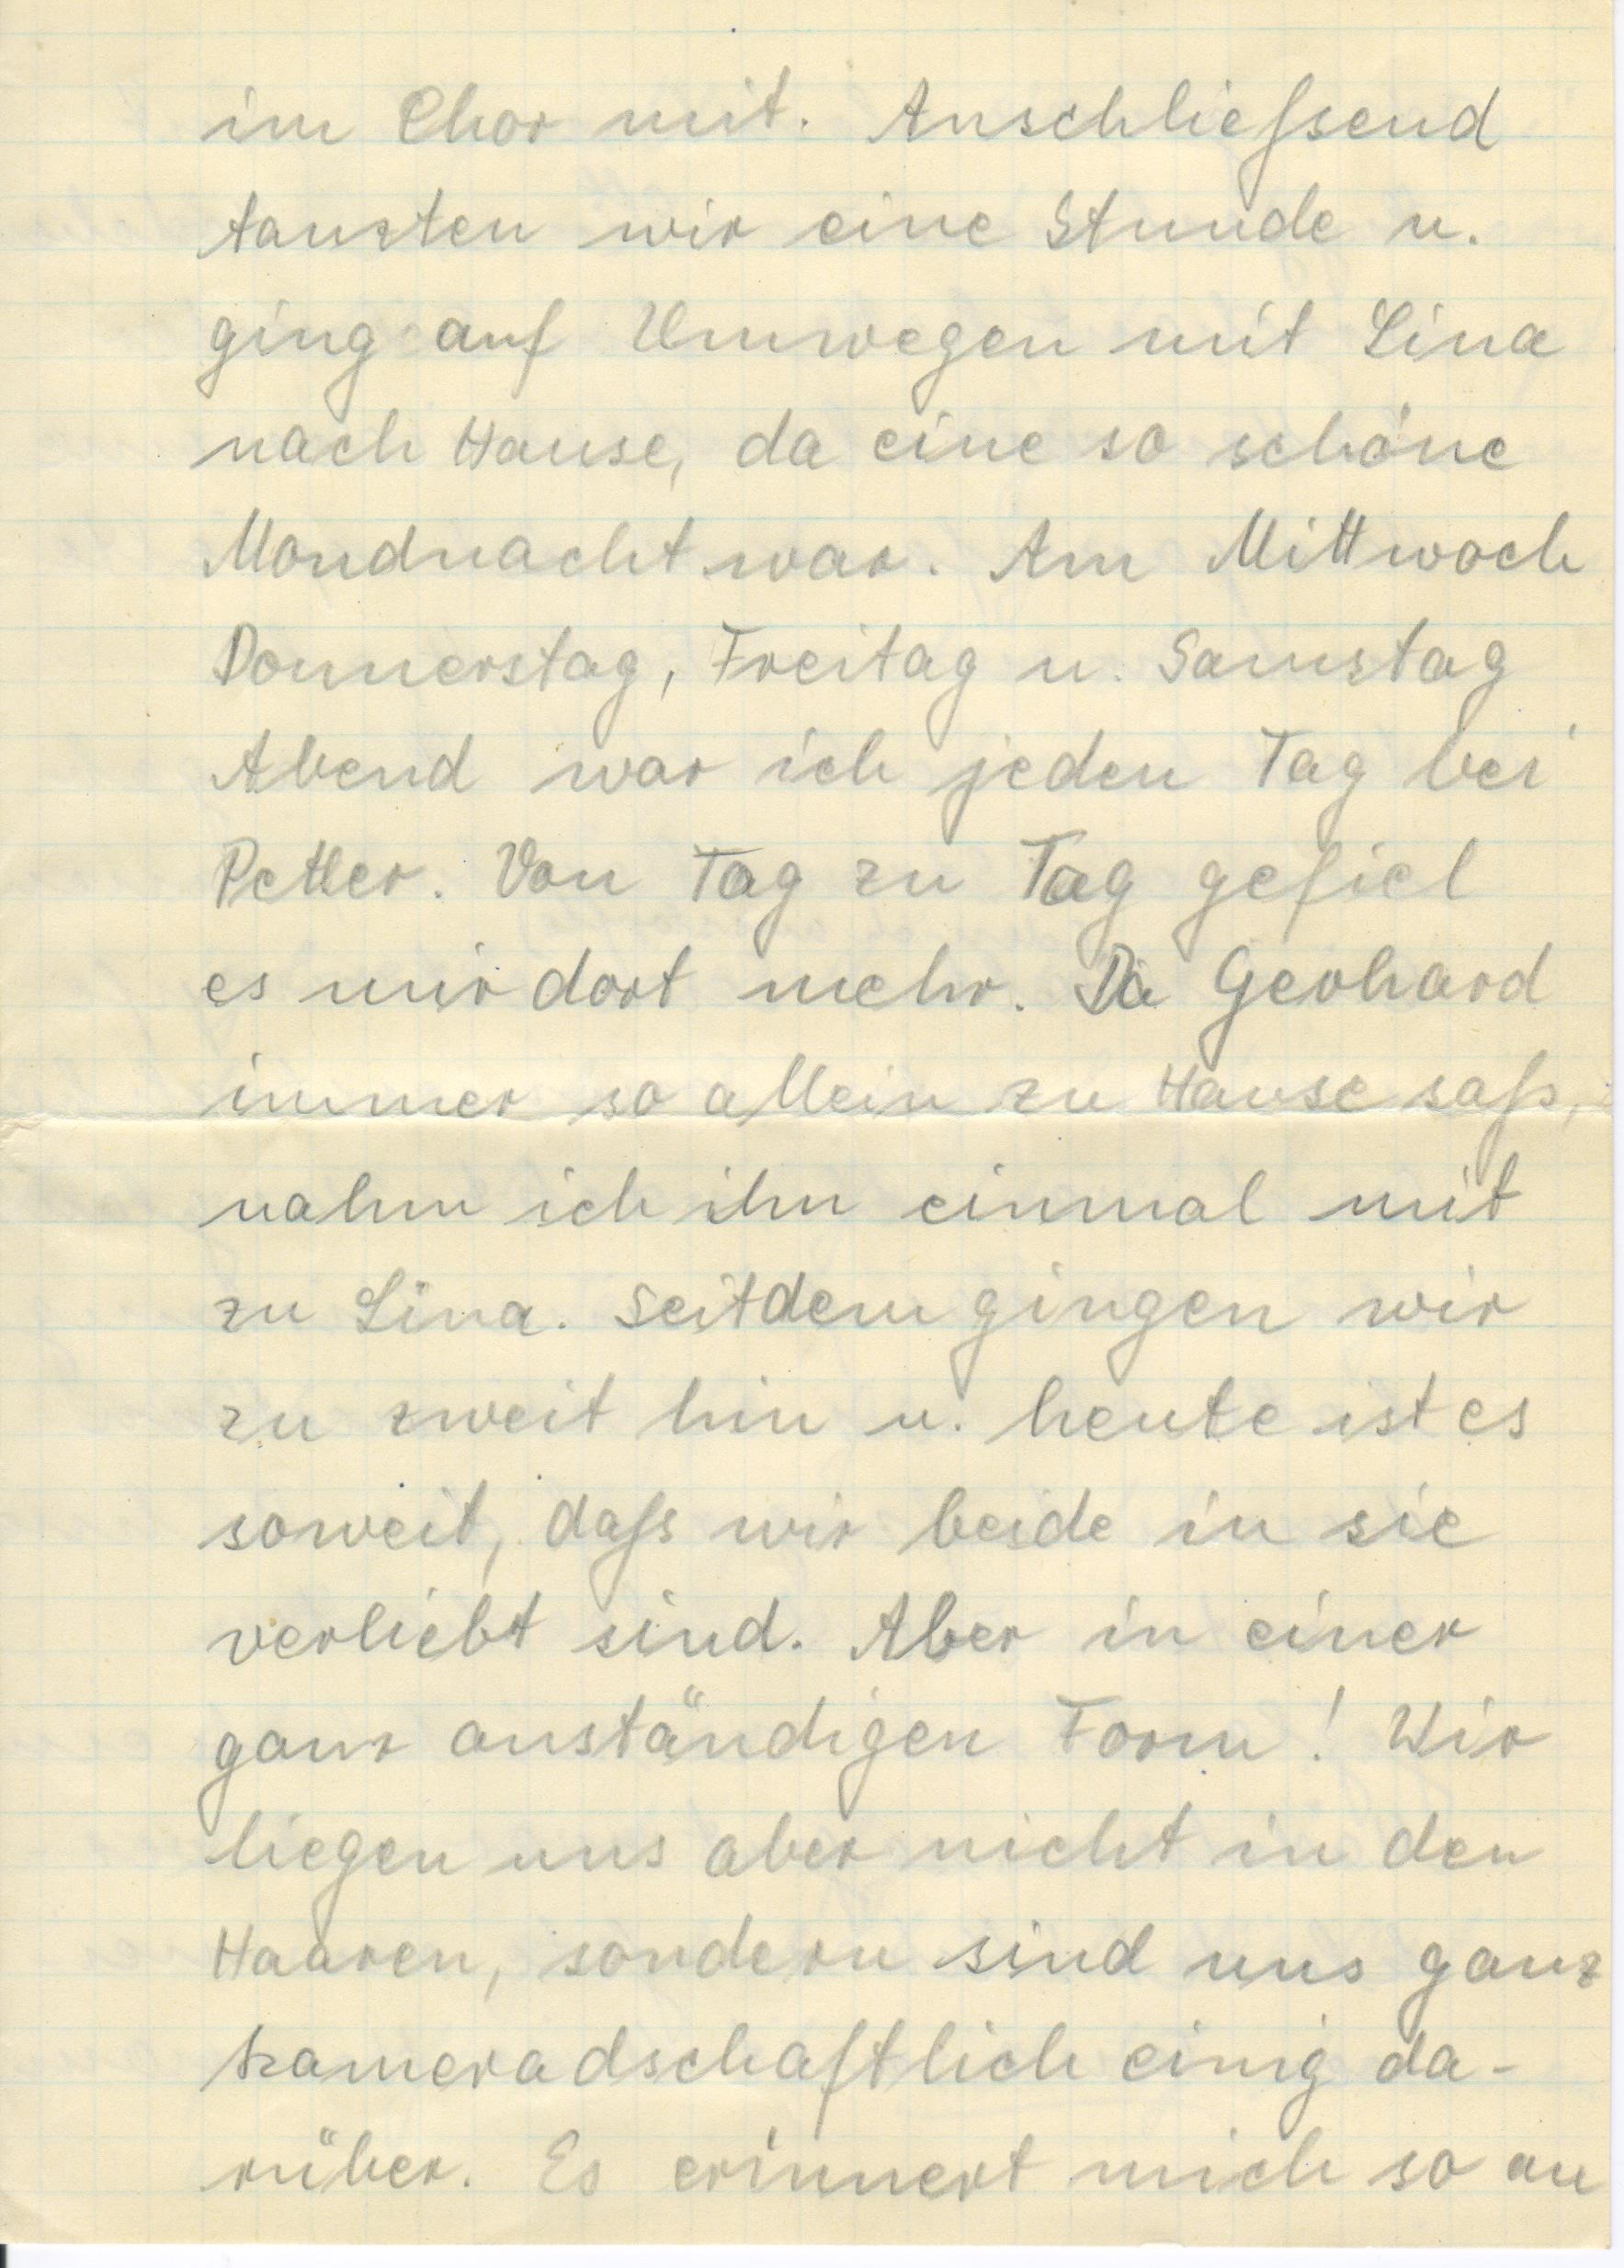 im Chor mit. Anschließend
tanzten wir eine Stunde u.
ging auf Umwegen mit Lina
nach Hause, da eine so schöne
Mondnacht war. Am Mittwoch
Donnerstag, Freitag u. Samstag
Abend war ich jeden Tag bei
Petter. Von Tag zu Tag gefiel
es mir dort mehr. Da Gerhard
immer so allein zu Hause saß,
nahm ich ihn einmal mit
zu Lina. Seitdem gingen wir
zu zweit hin u. heute ist es
soweit, daß wir beide in sie
verliebt sind. Aber in einer
ganz anständigen Form! Wir
liegen uns aber nicht in den
Haaren, sondern sind uns ganz
kameradschaftlich einig da-
rüber. Es erinnert mich so an